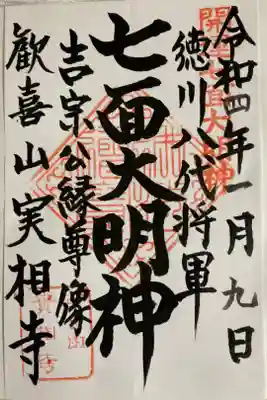 令和四年一月九日
徳川八代将軍
七面大明神
吉宗公縁尊像
歓喜山実相寺